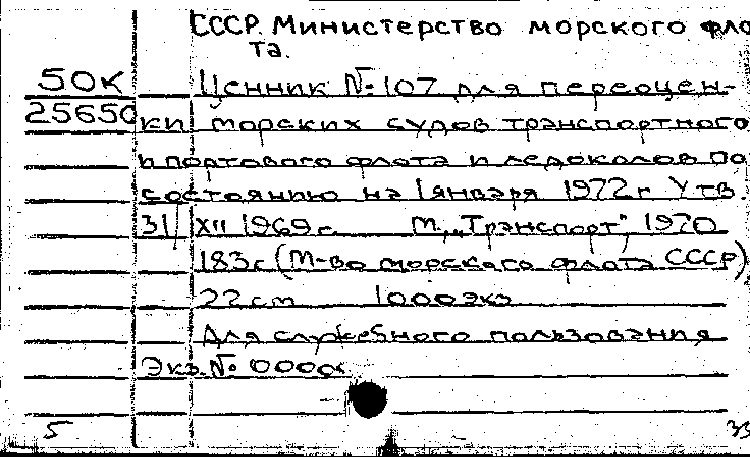 СССР. Министерство морского фло
та.
50к Ценник №107 для переоцен-
25650 ки морских судов транспортного
и портового флота и ледоколов по
состоянию на 1 января 1972 г Утв.
31/XII 1969 г. М, „Транспорт", 1970
183 с (М-во морского флота СССР)
22 см 1000 экз
Для служебного пользования
Экз. №
5 35